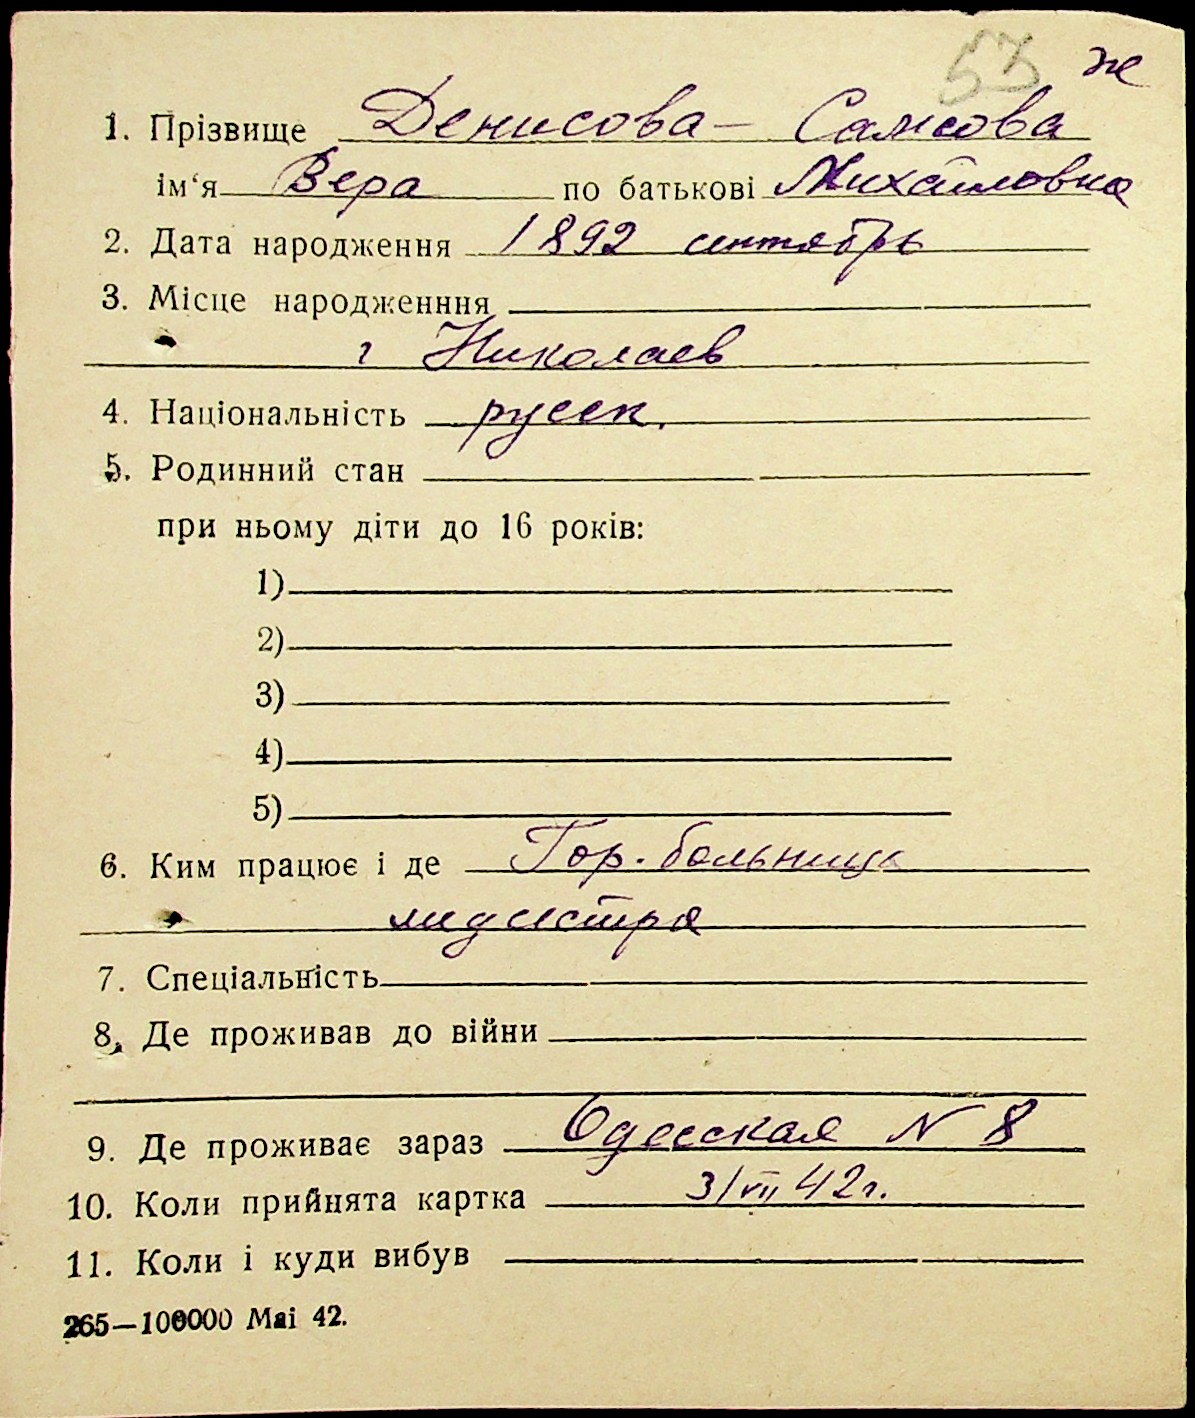 53 ж
1. Прізвище Денисова – Самсова
ім‘я Вера по батькові Михайловна
2. Дата народження 1892 сентябрь
3. Місце народженння
г Николаев
4. Національність русск.
5. Родинний стан
при ньому діти до 16 років:
1)
2)
3)
4)
5)
6. Ким працює і де Гор. больница
медсестра
7. Спеціальність
8. Де проживав до війни
9. Де проживає зараз Одесская N 8
10. Коли прийнята картка 3/VII 42 г.
11. Коли і куди вибув
265—100000 Mai 42.